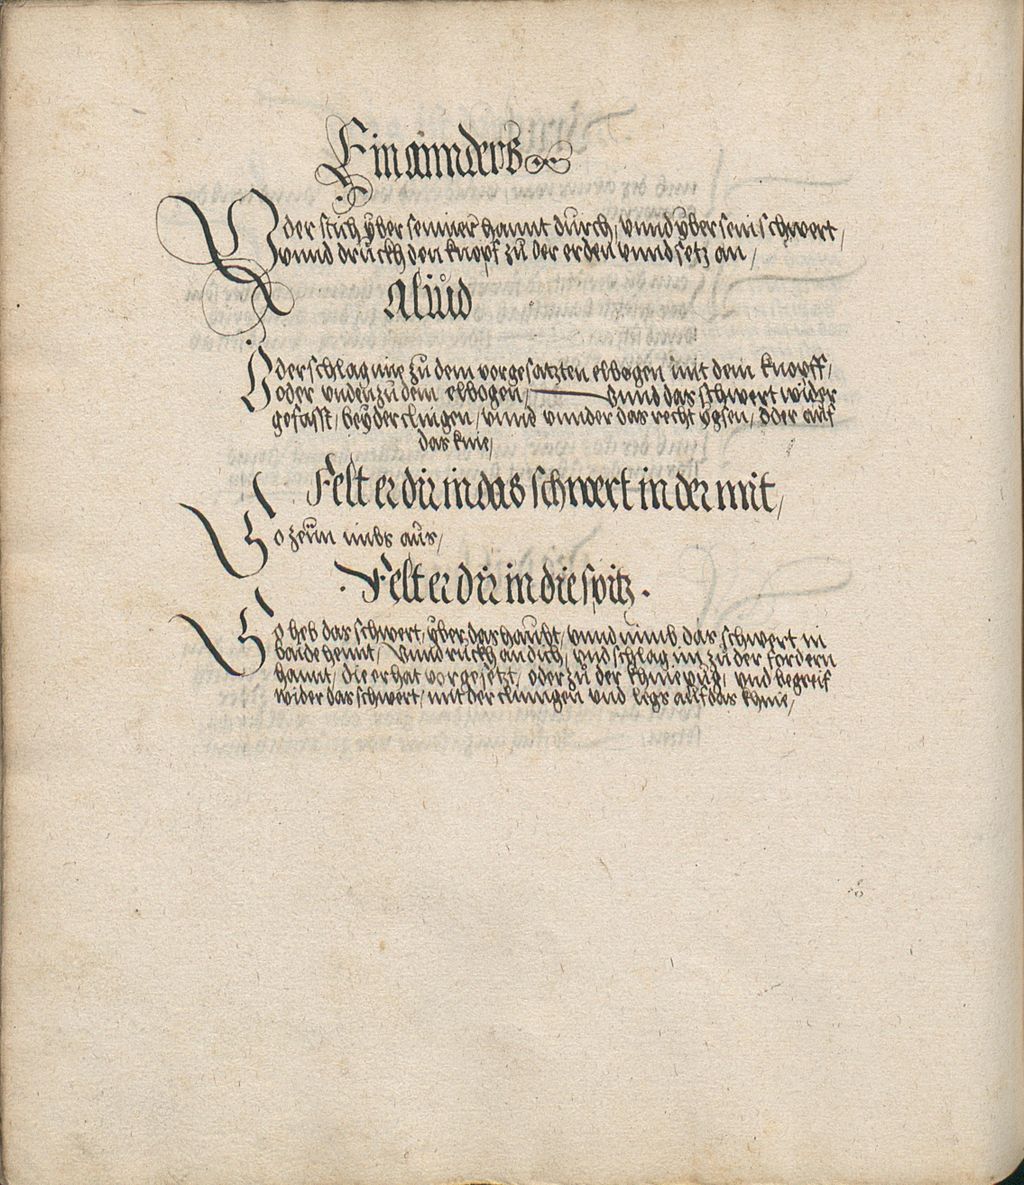 Ein annders
Oder stich yber seiner hannt durch, vnnd yber sein schwert,
vnnd druckh den knopf zu der erden vnnd setz an,
Aliud
Oder schlag ine zu dem vorgesatzten elbogen mit dem knopff,
oder vnden zu dem elbogen, vnnd das schwert wider
gefasst, bey der clingen, vnnd vnnder das recht yxsen, oder auf
das knie,
Felt er dir in das schwert in der mit,
So zeuch nibs aus,
Felt er dir in die spitz.
So heb das schwert, yber das haubt, vnnd nimb das schwert in
baide hennt, vnnd ruckh an dich, vnd schlag im zu der fordern
hannt, die er hat vorgesetzt, oder zu der khniepüg, vnd begreif
wider das schwert, mit der clinngen vnd legs auf das khnie,